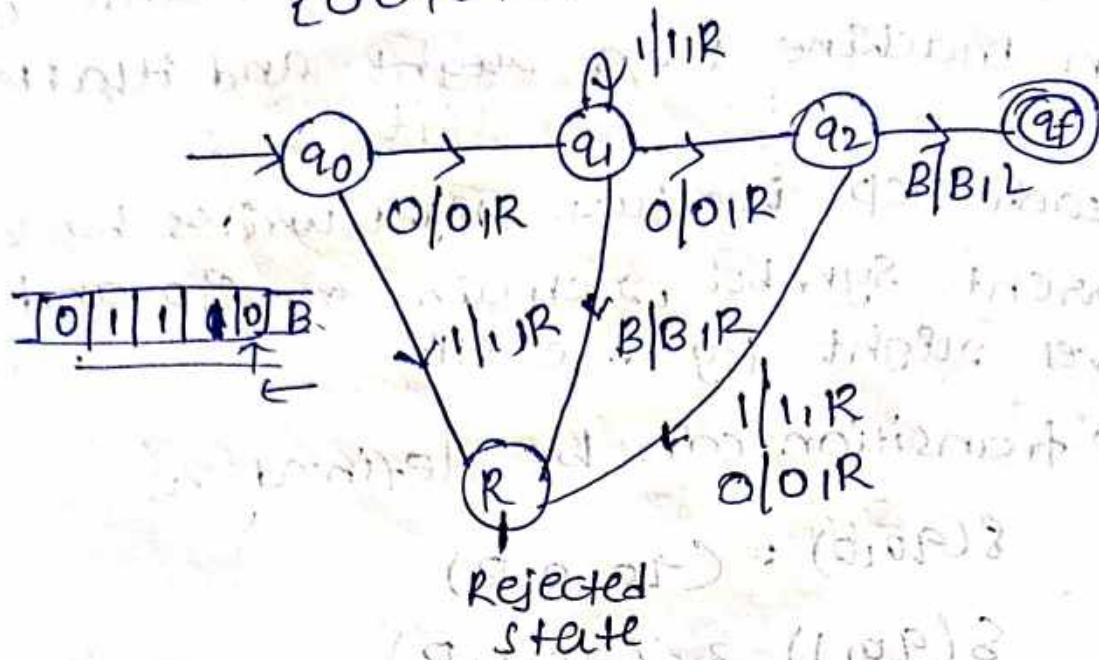 1/1,R
q0
q1
q2
qf
0/0,R
0/0,R
B/B,L
0 1 1 1 0 B
1/1,R
B/B,R
1/1,R
0/0,R
R
Rejected
state